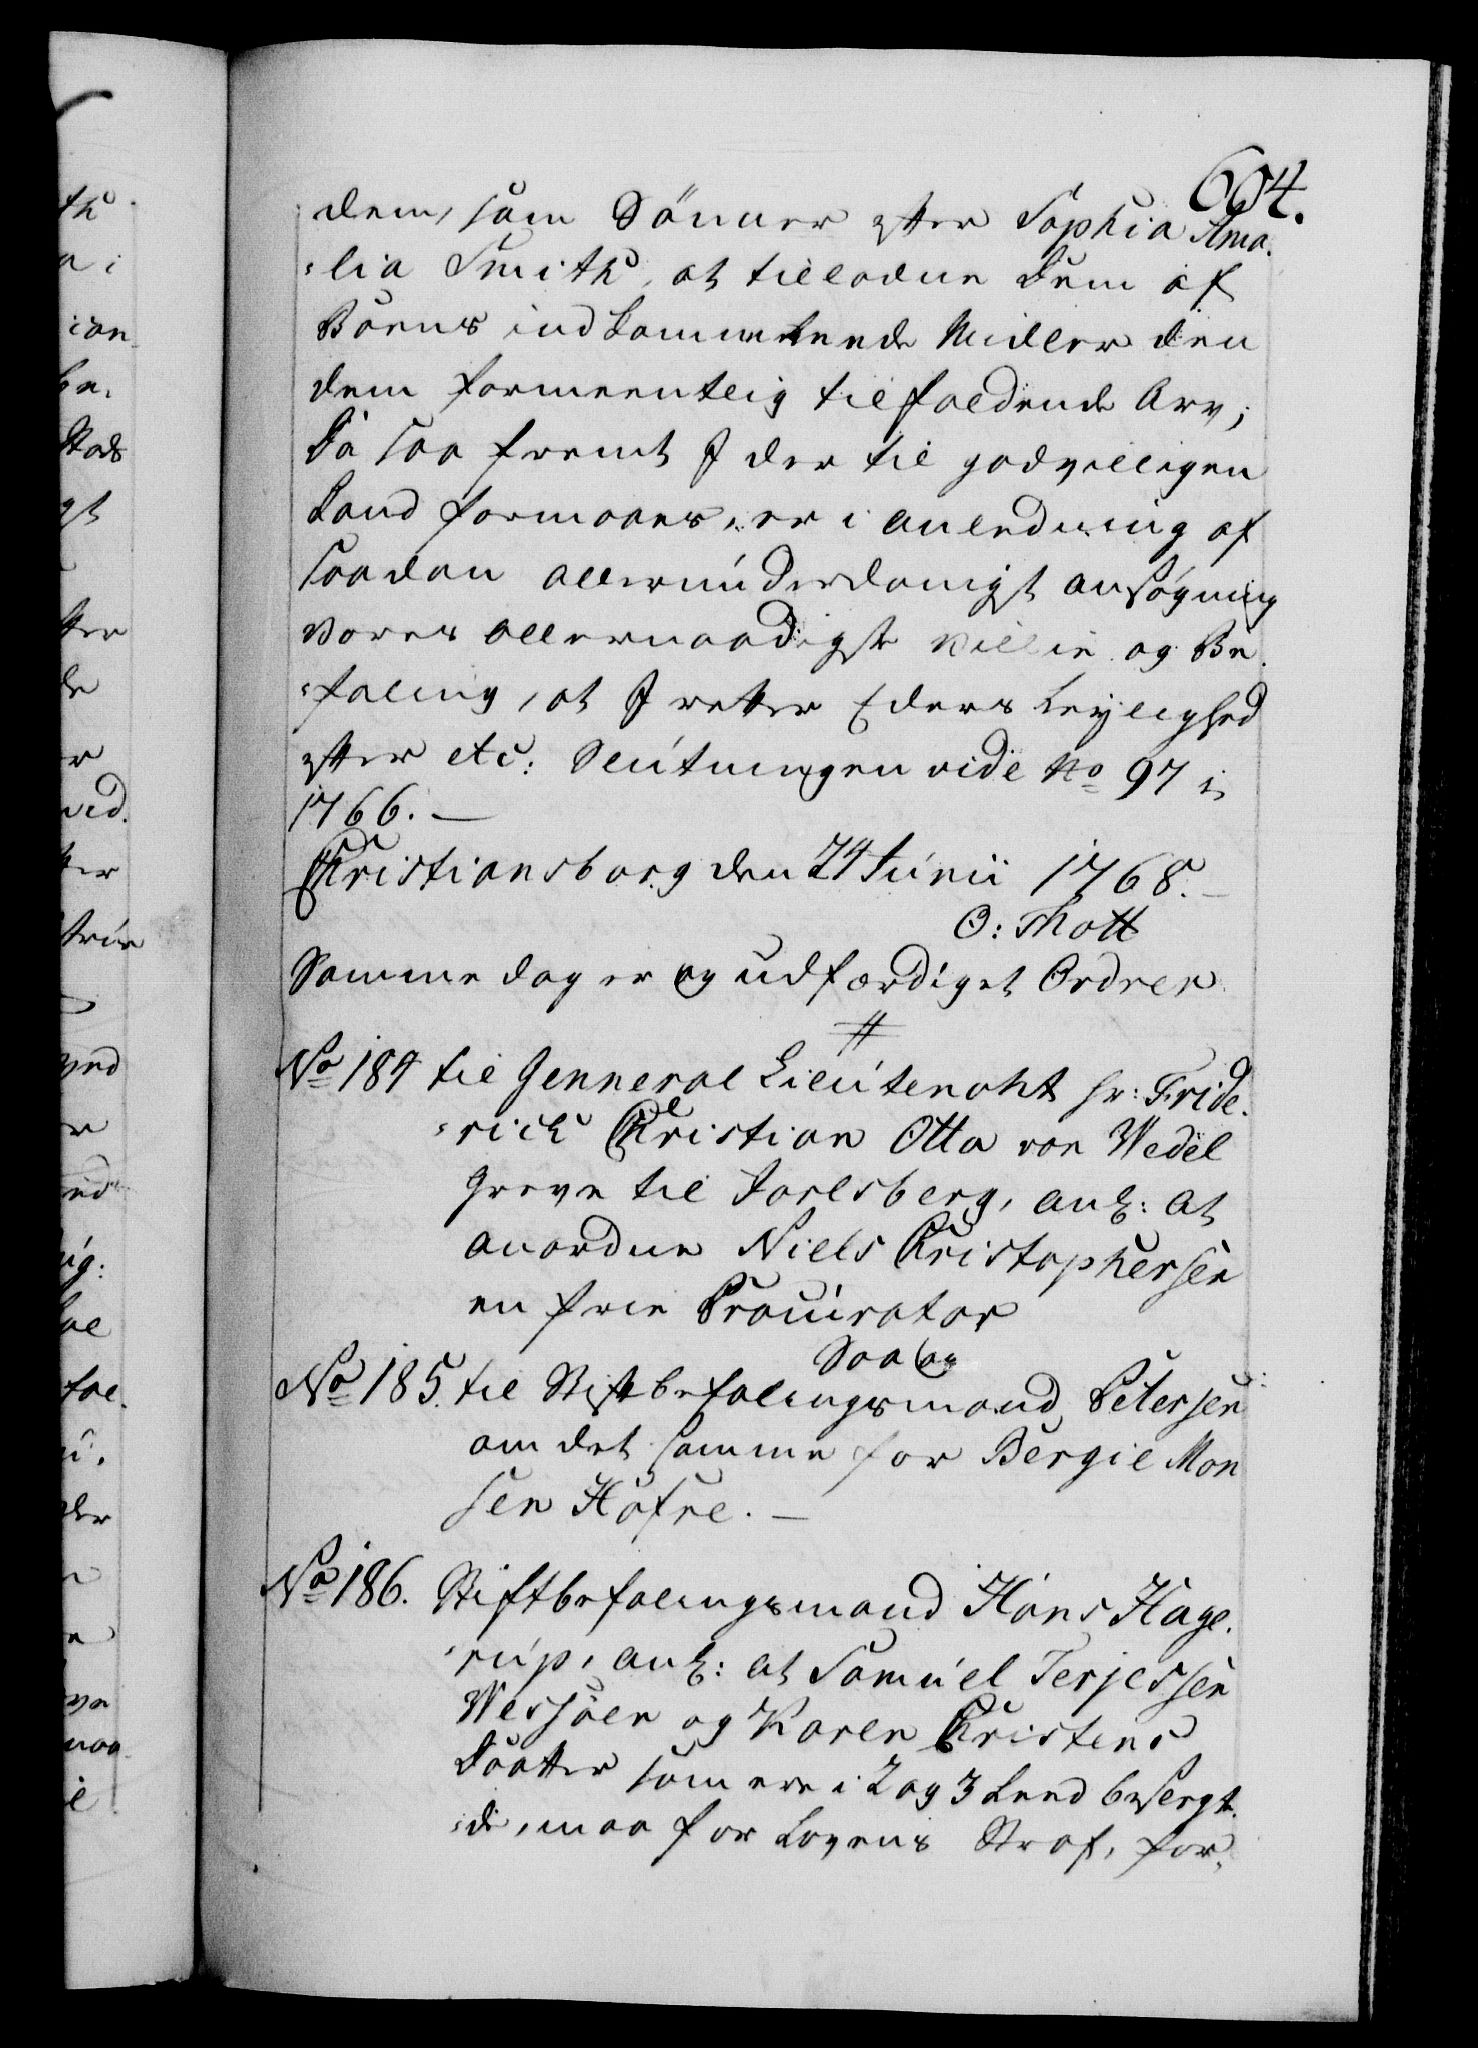 604.
dem, som Sönner efter Sophia Ama-
-lia Smith, at tillodne dem af
Boens indkommende Midler den
dem formeentlig tilfaldende Arv;
Da saa fremt I der til godvilligen
kand formaaes, er i anledning af
saadan allerunderdanigst ansøgning
vores allernaadigste villie og Be-
-faling, at I retter Eders Leylighed
efter etc: Slutningen vide No 97 i
1766. —
Christiansborg den 24 Junii 1768. —
O: Thott
Samme dag er og udfærdiget Ordrer
No 184 til Genneral Lieutenant hr: Fride-
-rich Christian Otto von Wedel
Greve til Jarlsberg, ank: at
anordne Niels Christophersen
en frie Procurator
Saa og
No 185. til Stiftbefalingsmand Petersen
om det samme for Bergie Mon
sen Hofre. —
No 186. Stiftbefalingsmand Hans Hage-
-rup, ank: at Samuel Terjessen
Wessøen og Karen Christens
Daatter som ere i 2 og 3 Leed besvergt-
-de, maa for Lovens Straf, for-